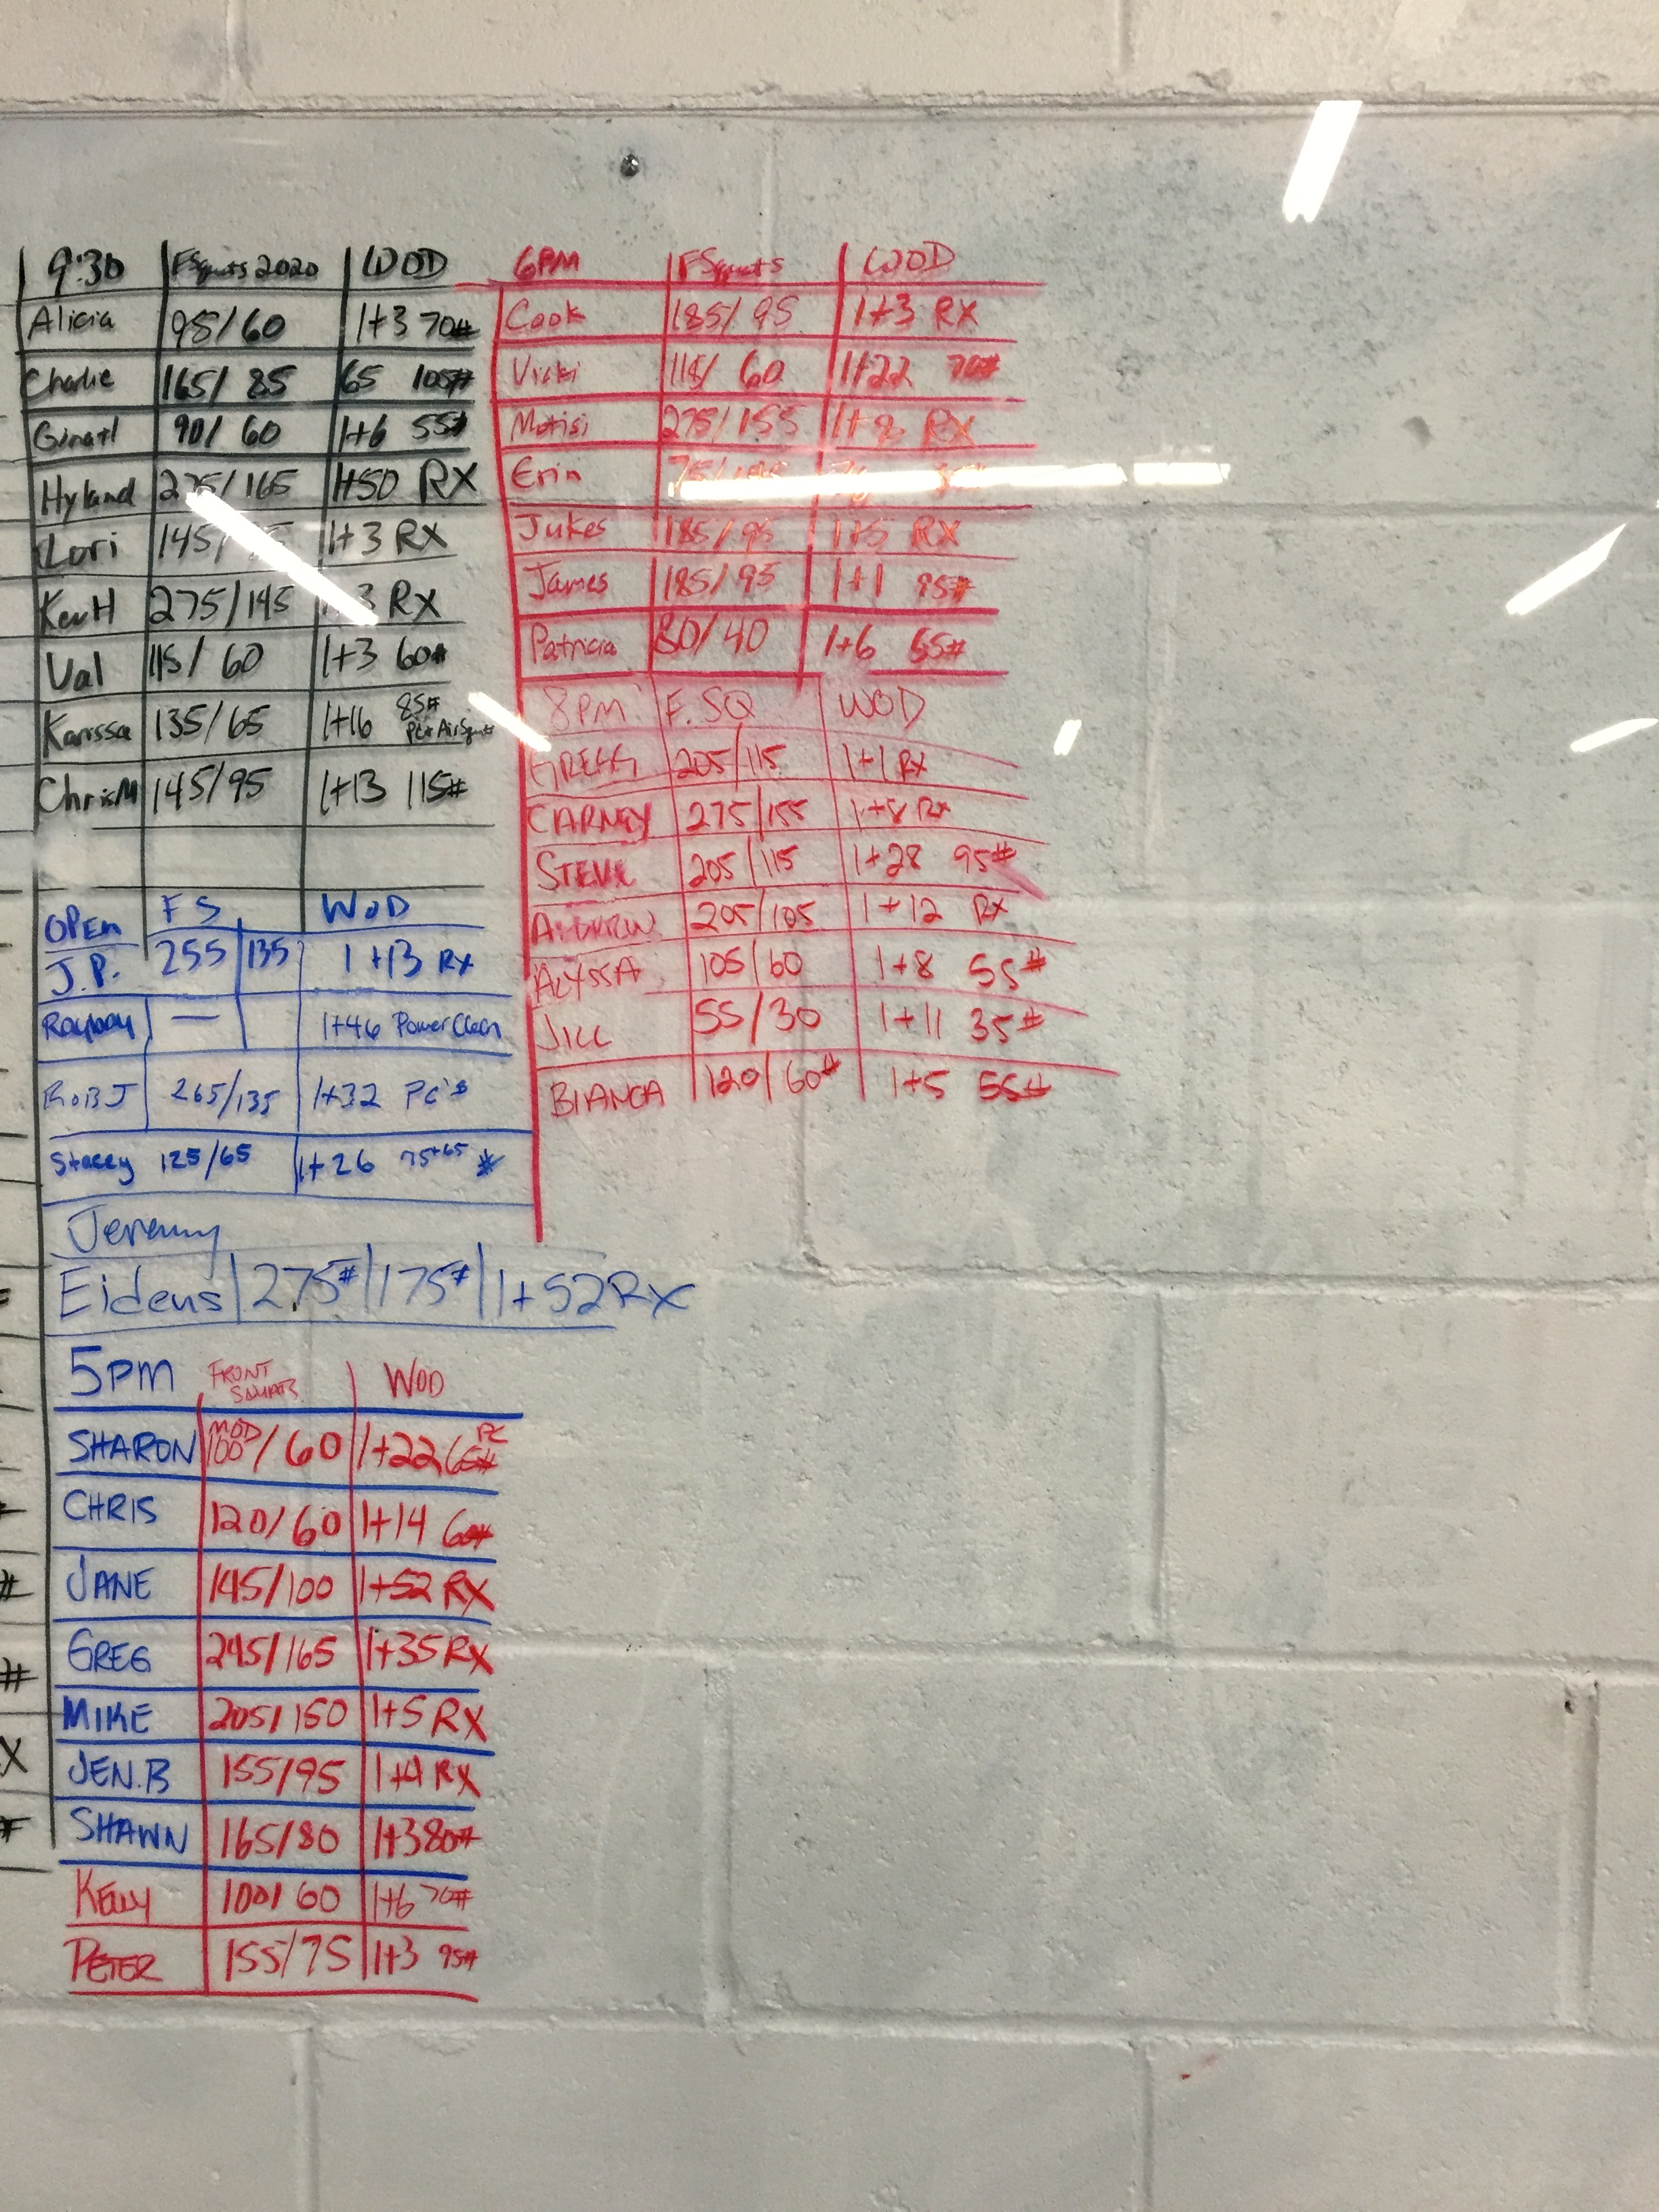 9:30 FSquats 2020 WOD
Alicia 95/60 1+3 70#
Charlie 165/85 65 105#
90/60 1+6 55#
Hyland 275/165 1+50 RX
Lori 145/ 1+3 RX
KevH 275/145 3 RX
Val 115/60 1+3 60#
Karissa 135/65 1+16 85#
ChrisM 145/95 1+13 115#
OPEN FS WOD
J.P. 255 135 1+13 RX
— 1+46 Power Clean
ROB J 265/135 1+32 PC's
Stacey 125/65 1+26 75+65 #
Jeremy
Eidens 275# 175# 1+52 RX
5PM FRONT SQUATS WOD
SHARON MOD 100/60 1+22 65# PC
CHRIS 120/60 1+14 60#
JANE 145/100 1+52 RX
GREG 245/165 1+35 RX
MIKE 205/150 1+5 RX
JEN.B 155/95 1+4 RX
SHAWN 165/80 1+3 80#
KELLY 100/60 1+6 70#
PETER 155/75 1+3 95#
6PM FSquats WOD
Cook 185/95 1+3 RX
Vicki 115/60 1+22 70#
Motisi 275/155 1+8 RX
Erin 75/
Jukes 185/95 1+5 RX
James 185/95 1+1 95#
Patricia 80/40 1+6 55#
8PM F. SQ WOD
GREGG 205/115 1+1 RX
CARNEY 275/155 1+8 RX
STEVE 205/115 1+28 95#
ANDREW 205/105 1+12 RX
ALYSSA 105/60 1+8 55#
JILL 55/30 1+11 35#
BIANCA 120/60# 1+5 55#